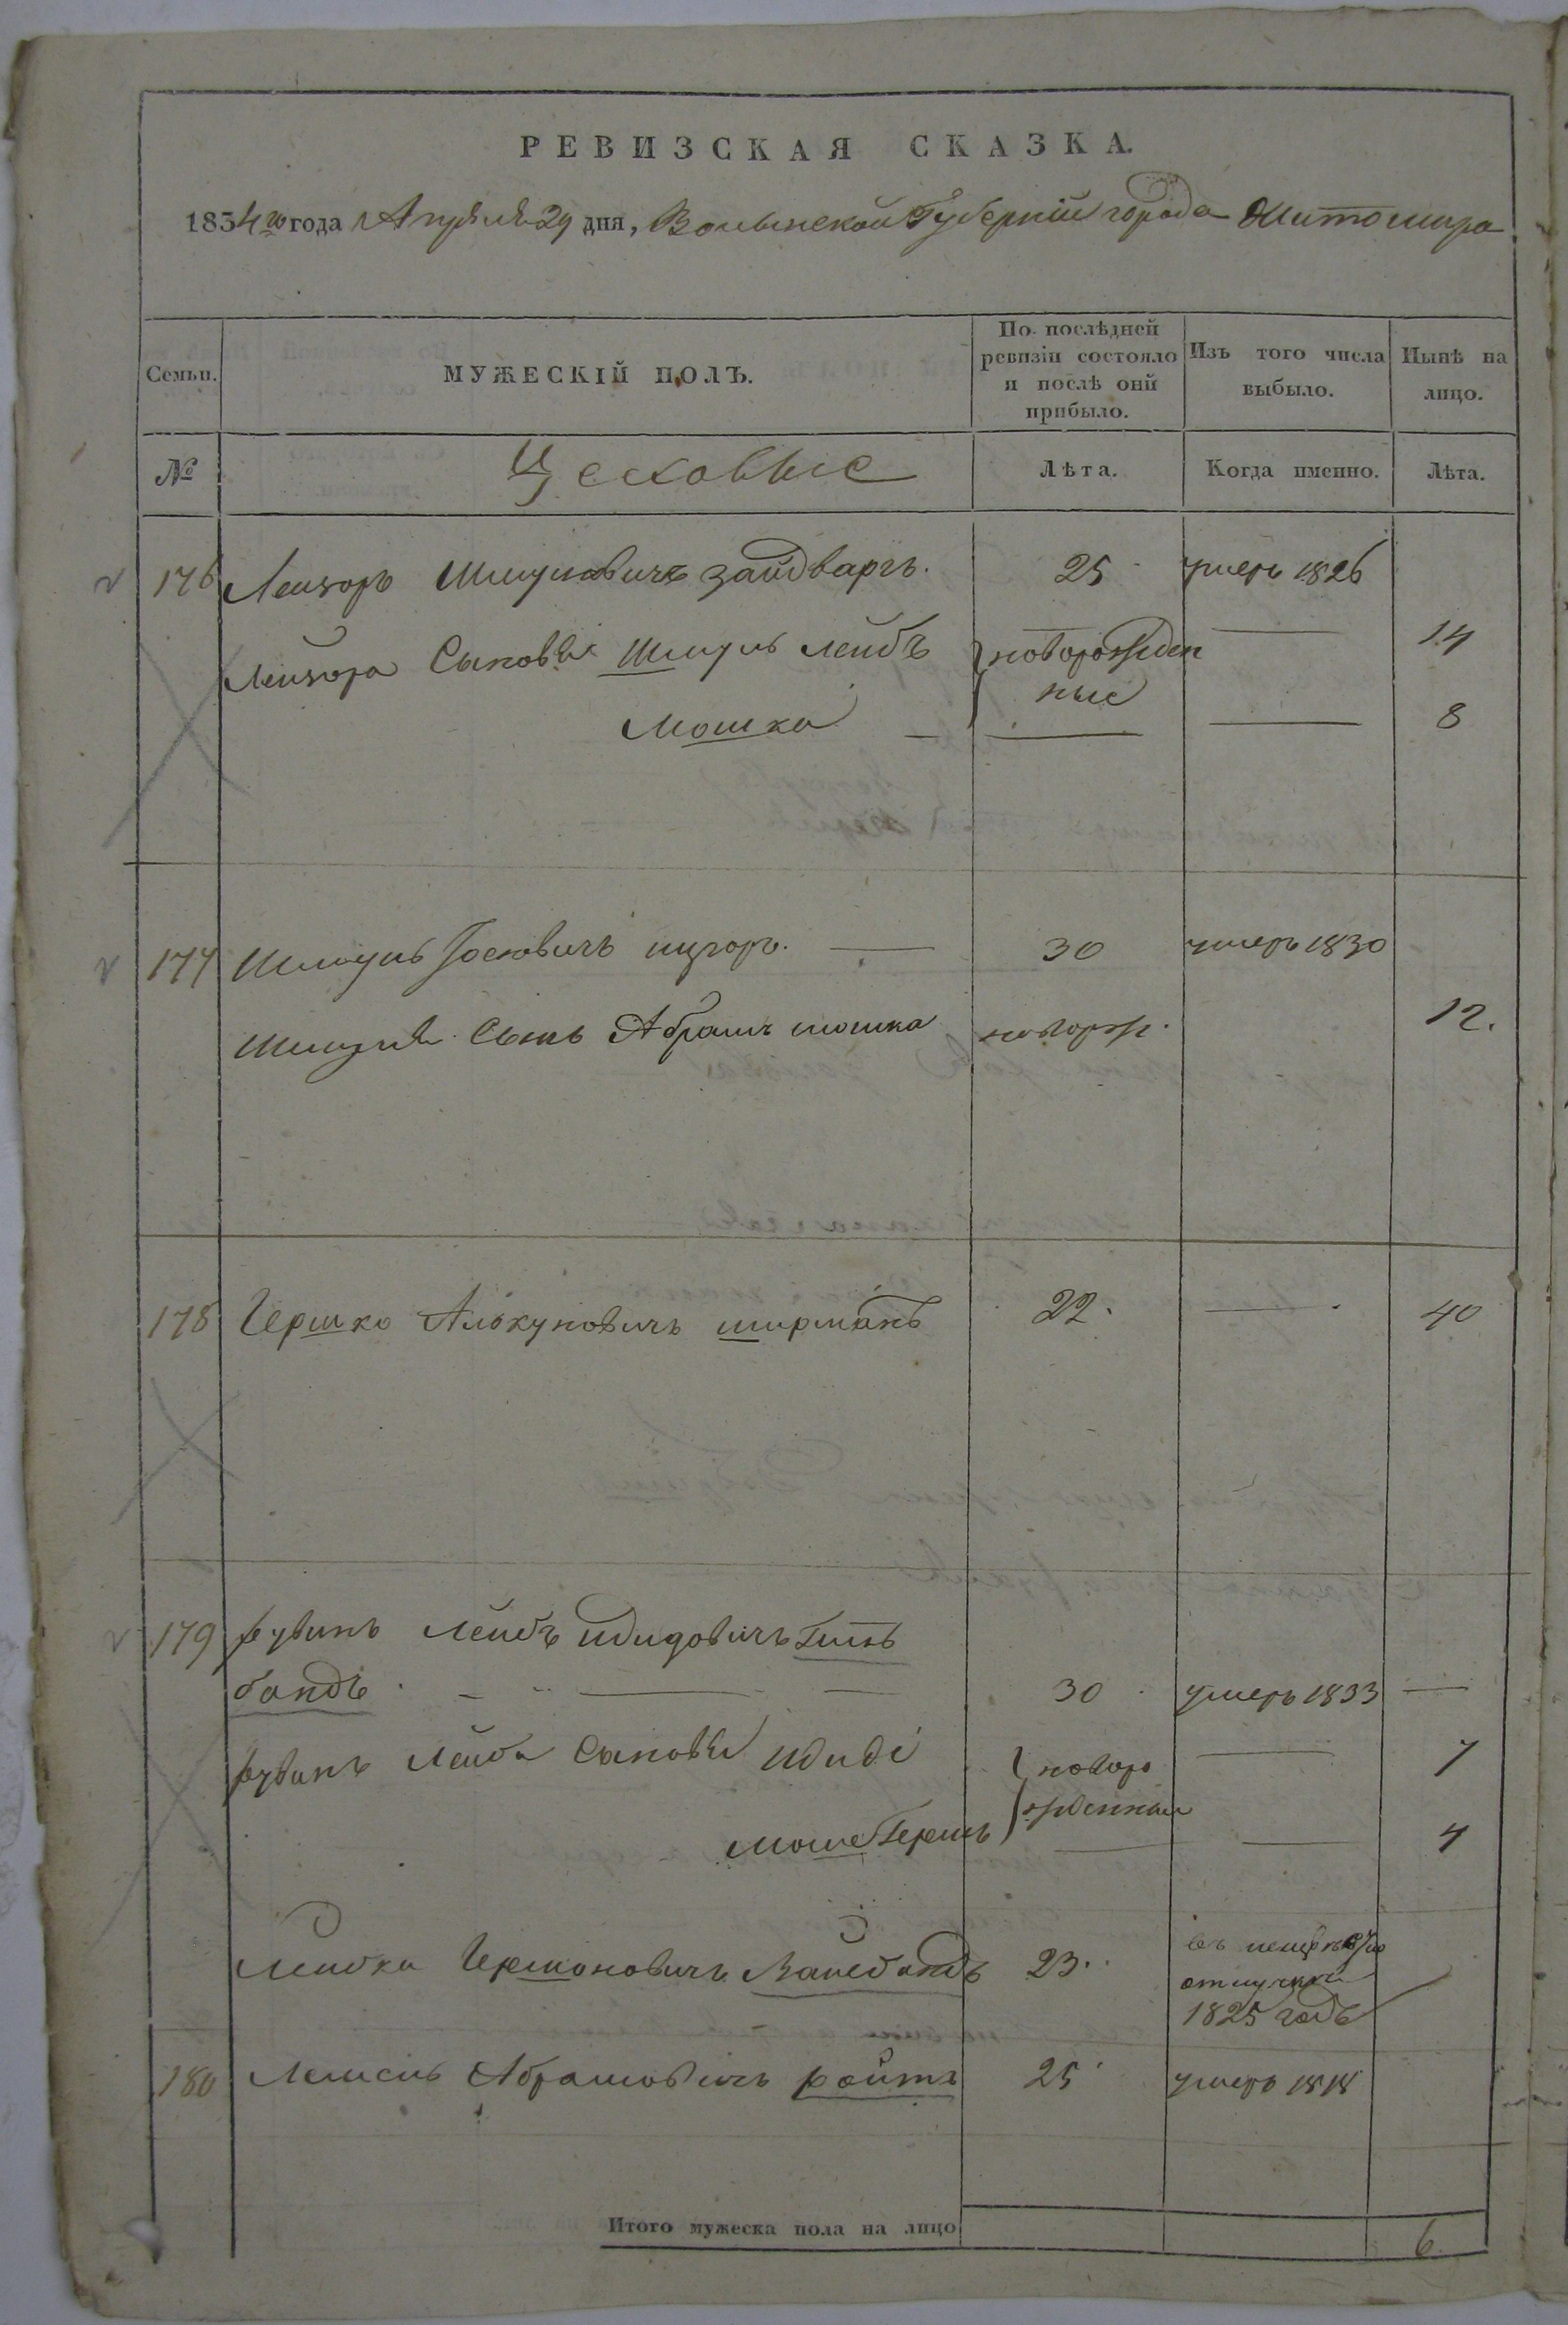 РЕВИЗСКАЯ СКАЗКА.
1834го года Апреля 29 дня, Волынской Губернии города Житомира
Семьи. МУЖЕСКІЙ ПОЛЪ. По послѣдней ревизіи состояло и послѣ оной прибыло. Изъ того числа выбыло. Нынѣ на лицо.
№ Цеховые Лѣта. Когда именно. Лѣта.
176 Лейзоръ Шмулевичъ Зайдваргъ. 25 умеръ 1826
Лейзора Сыновья Шмуль Лейбъ новорожден 14
Мошко ные 8
177 Шмуль Іосіовичъ 30 умеръ 1830
Шмуля Сынъ Абрамъ Мошка новорож. 12.
178 Гершко ширманъ 22. 40
179 рувинъ Лейбъ Идидовичъ Гинь
бандъ 30 умеръ 1833
рувинъ Лейба Сыновья Идиді новоро 7
Моше Гершъ жденныи 4
Лейбка Гершоновичъ 23. въ
1825 годѣ
180 Абрамовичъ ройтъ 25 умеръ 1818
Итого мужеска пола на лицо 6